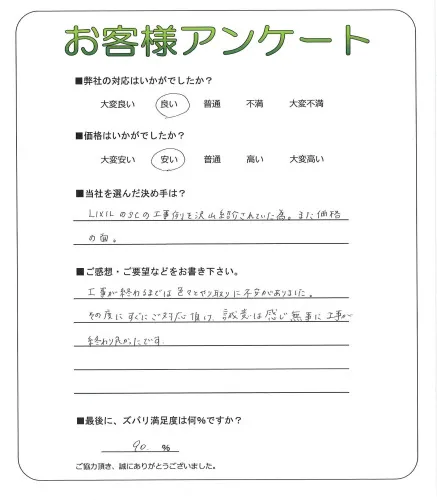 お客様アンケート
■弊社の対応はいかがでしたか？
大変良い 良い 普通 不満 大変不満
■価格はいかがでしたか？
大変安い 安い 普通 高い 大変高い
■当社を選んだ決め手は？
LIXILのSCの工事例を沢山紹介されていた為。また価格
の面。
■ご感想・ご要望などをお書き下さい。
工事が終わるまでは色々とやり取りに不安がありました。
その度にすぐにご対応頂け、誠意は感じ無事に工事が
終わり良かったです。
■最後に、ズバリ満足度は何％ですか？
90 ％
ご協力頂き、誠にありがとうございました。